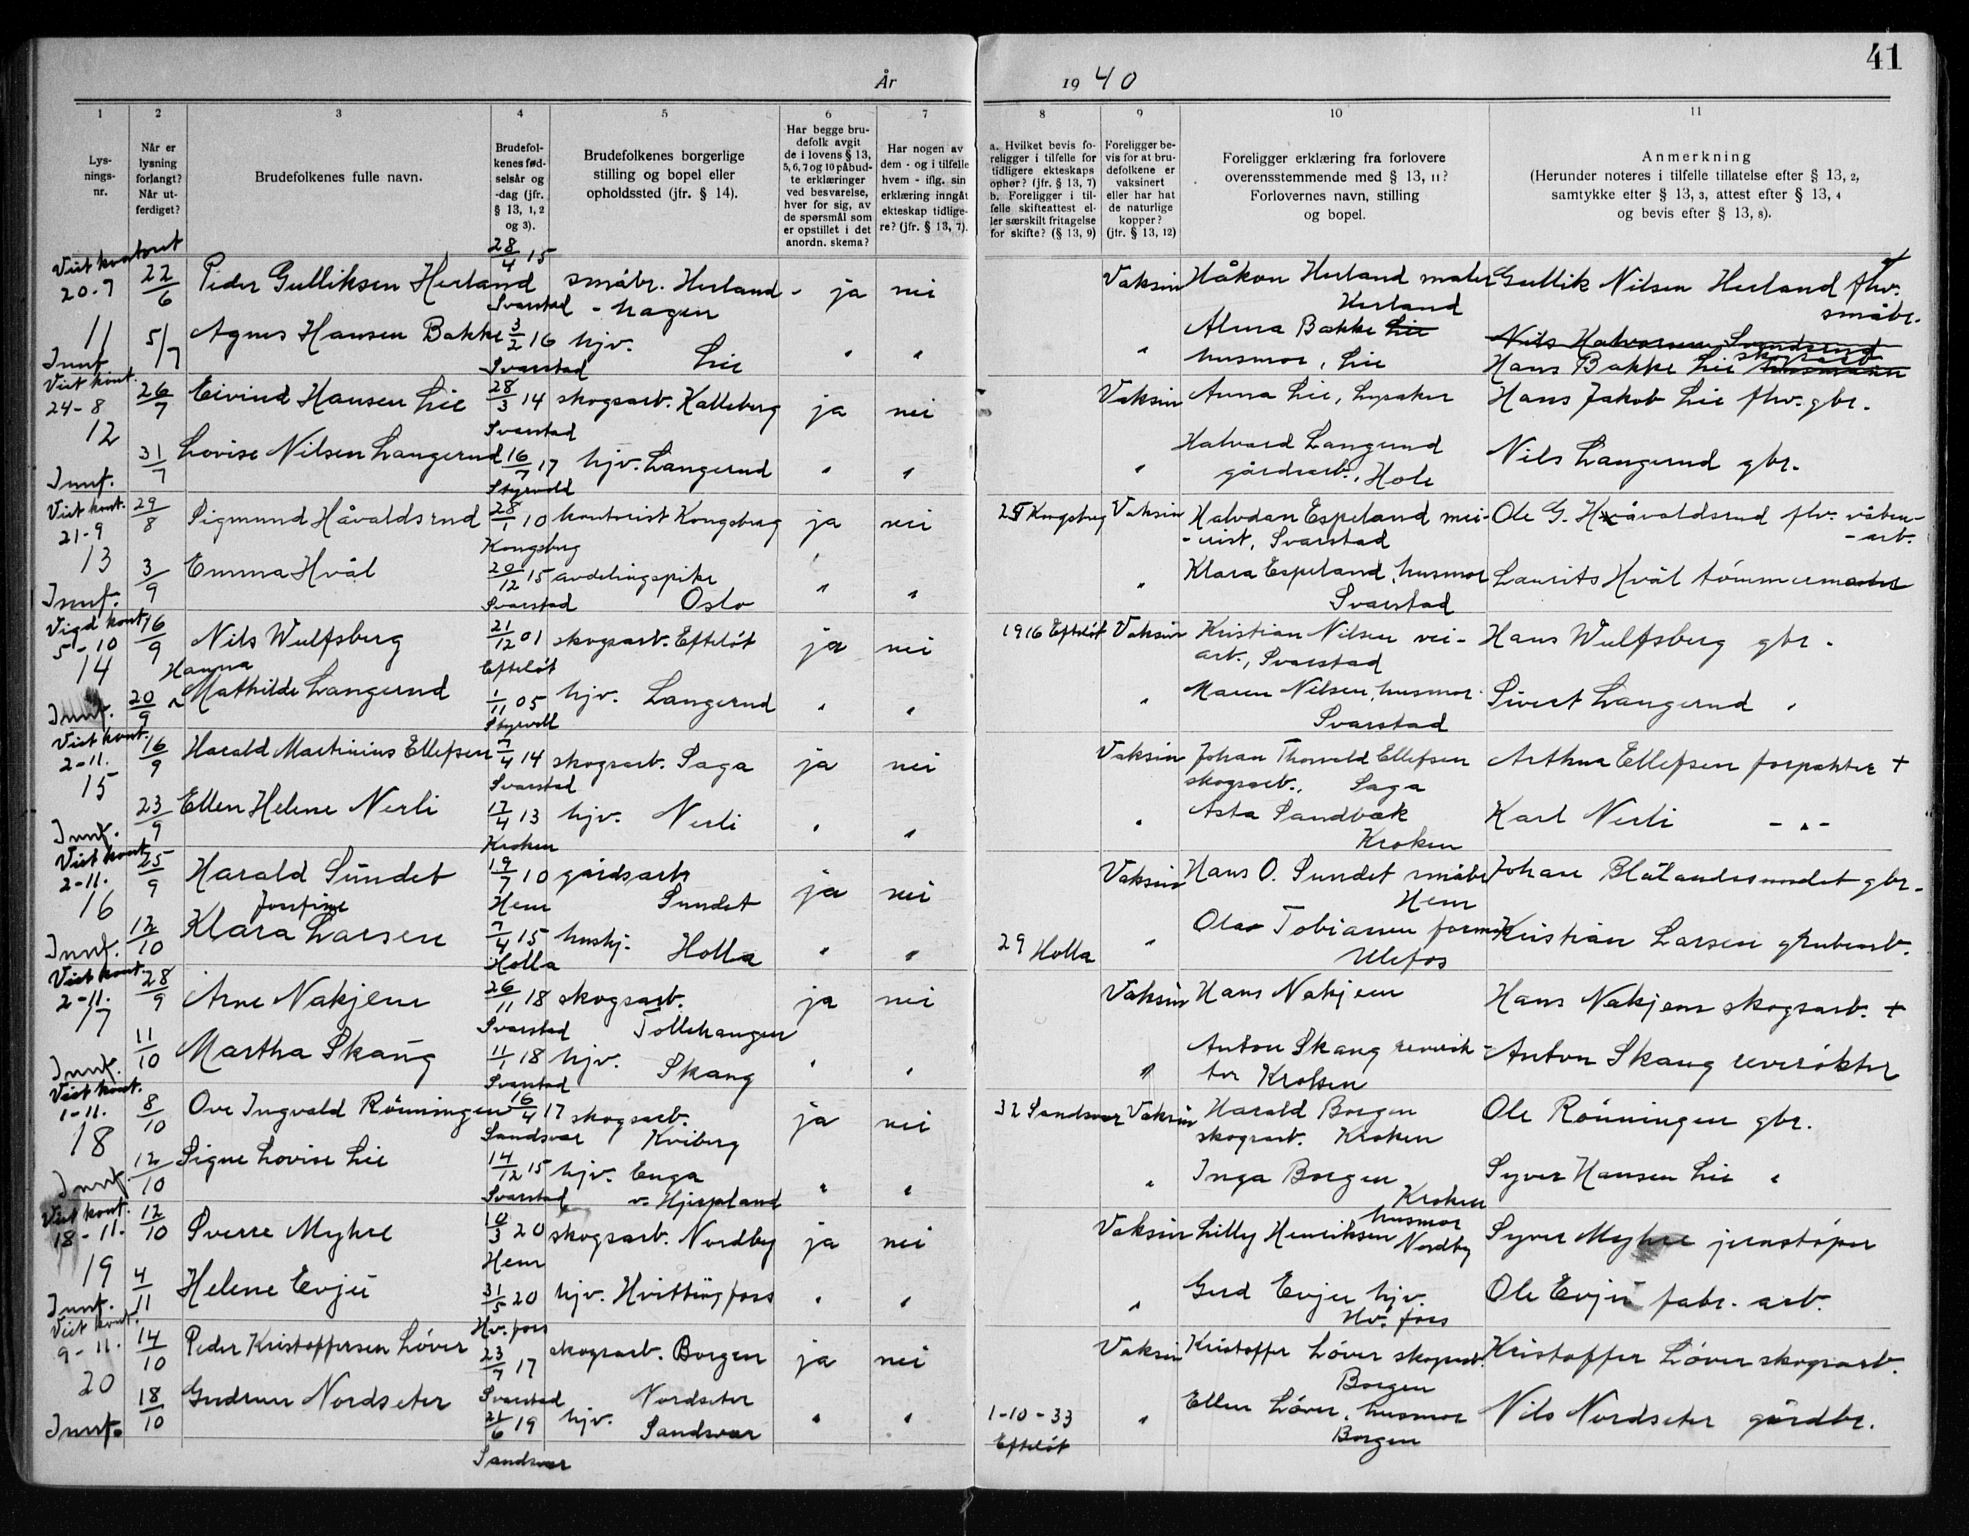 41
År 1940
1 2 3 4 5 6 7 8 9 10 11
Lys-
nings-
nr.
Når er
lysning
forlangt?
Når ut-
ferdiget?
Brudefolkenes fulle navn.
Brudefol-
kenes fød-
selsår og
-dag (jfr.
§ 13, 1, 2
og 3).
Brudefolkenes borgerlige
stilling og bopel eller
opholdssted (jfr. § 14).
Har begge bru-
defolk avgit
de i lovens § 13,
5, 6, 7 og 10 påbud-
te erklæringer
ved besvarelse,
hver for sig, av
de spørsmål som
er opstillet i det
anordn. skema?
Har nogen av
dem - og i tilfelle
hvem - iflg. sin
erklæring inngåt
ekteskap tidlige-
re? (jfr. § 13, 7).
a. Hvilket bevis fo-
religger i tilfelle for
tidligere ekteskaps
ophør? (jfr. § 13, 7)
b. Foreligger i til-
felle skifteattest el-
ler særskilt fritagelse
for skifte? (§ 13, 9)
Foreligger be-
vis for at bru-
defolkene er
vaksinert
eller har hat
de naturlige
kopper?
(jfr. § 13, 12)
Foreligger erklæring fra forlovere
overensstemmende med § 13, 11?
Forlovernes navn, stilling
og bopel.
Anmerkning
(Herunder noteres i tilfelle tillatelse efter § 13, 2,
samtykke efter § 13, 3, attest efter § 13, 4
og bevis efter § 13, 8).
Viet kontort 28/4 15
20-7 22/6 Peder Gulliksen Herland småbr. Herland- ja nei Vaksin Håkon Herland maler Gullik Nilsen Herland fhv. +
Svarstad -hagen Herland småbr.
11 5/7 Agnes Hansen Bakke 3/2 16 hjv. " " " Alma Bakke Lie Nils Halvorsen Svendsrud
Innf. Svarstad Lie husmor, Lie Hans Bakke Lie skogsarb. husmann
Viet kont.
24-8 26/7 Eivind Hansen Lie 28/3 14 skogsarb. Kalleberg ja nei Vaksin Anna Lie, Lysaker Hans Jakob Lie fhv. gbr.
12 Svarstad
31/7 Lovise Nilsen Langerud 16/7 17 hjv. Langerud " " " Halvard Langerud Nils Langerud gbr.
Innf. Styrvoll gårdsarb., Hole
Viet kont.
21-9 29/8 Sigmund Håvaldsrud 28/1 10 kontorist Kongsberg ja nei 25 Kongsberg Vaksin Halvdan Espeland mei- Ole G. Håvaldsrud fhv. våben-
Kongsberg -erist, Svarstad -arb.
13 3/9 Emma Hvål 20/12 15 avdelingspike " " " Klara Espeland, husmor Laurits Hvål tømmermester
Innf. Svarstad Oslo Svarstad
Vigd kont.
5-10 16/9 Nils Wulfsberg 21/12 01 skogsarb. Efteløt ja nei 1916 Efteløt Vaksin Kristian Nilsen vei- Hans Wulfsberg gbr.
14 Efteløt arb., Svarstad
Hanna
20/9 Mathilde Langerud 1/11 05 hjv. Langerud " " " Maren Nilsen, husmor Sivert Langerud "
Innf. Styrvoll Svarstad
Viet kont.
2-11. 16/9 Harald Martinius Ellefsen 7/4 14 skogsarb. Saga ja nei Vaksin Johan Thorvald Ellefsen Arthur Ellefsen forpakter +
15 Svarstad skogsarb., Saga
23/9 Ellen Helene Nerli 17/4 13 hjv. Nerli " " " Asta Sandbæk Karl Nerli - " -
Innf. Kroken Kroken
Viet kont.
2-11. 25/9 Harald Sundet 19/7 10 gårdsarb. ja nei Vaksin Hans O. Sundet småbr. Johan Blålandsundet gbr.
16 Josefine Hem Sundet Hem
12/10 Klara Larsen 7/4 15 hushj. Holla " " 29 Holla " Olav Tobiassen former Kristian Larsen grubearb.
Innf. Holla Ulefos
Viet kont.
2-11. 28/9 Arne Nakjem 26/11 18 skogsarb. ja nei Vaksin Hans Nakjem Hans Nakjem skogsarb. +
17 Svarstad Tollehaugen
11/10 Martha Skaug 11/1 18 hjv. Skaug " " " Anton Skaug reverøk- Anton Skaug reverøkter
Innf. Svarstad ter Kroken
Viet kont.
1-11. 8/10 Ove Ingvald Rönningen 16/4 17 skogsarb. ja nei 32 Sandsvær Vaksin Harald Borgen Ole Rönningen gbr.
18 Sandsvær Kviberg skogsarb. Kroken
12/10 Signe Lovise Lie 14/12 15 hjv. Enga " " " Inga Borgen Syver Hansen Lie "
Innf. Svarstad v. Hjerpland Kroken
Viet kont. husmor
18-11. 12/10 Sverre Myhre 10/3 20 skogsarb. Nordby ja nei Vaksin Lilly Henriksen Nordby Syver Myhre jernstøper
19 Hem
4/11 Helene Evju 31/5 20 hjv. Hvittingfoss " " " Gud Evju hjv. Ole Evju fabr. arb.
Innf. Hv. foss Hv. foss
Viet kont.
9-11. 14/10 Peder Kristoffersen Löver 23/7 17 skogsarb. Borgen ja nei Vaksin Kristoffer Löver skogsarb. Kristoffer Löver skogsarb.
20 Svarstad Nordseter Borgen
18/10 Gudrun Nordseter 21/6 19 hjv. Sandsvær " " 1-10-33 " Ellen Löver, husmor Nils Nordseter gårdbr.
Innf. Sandsvær Efteløt Borgen